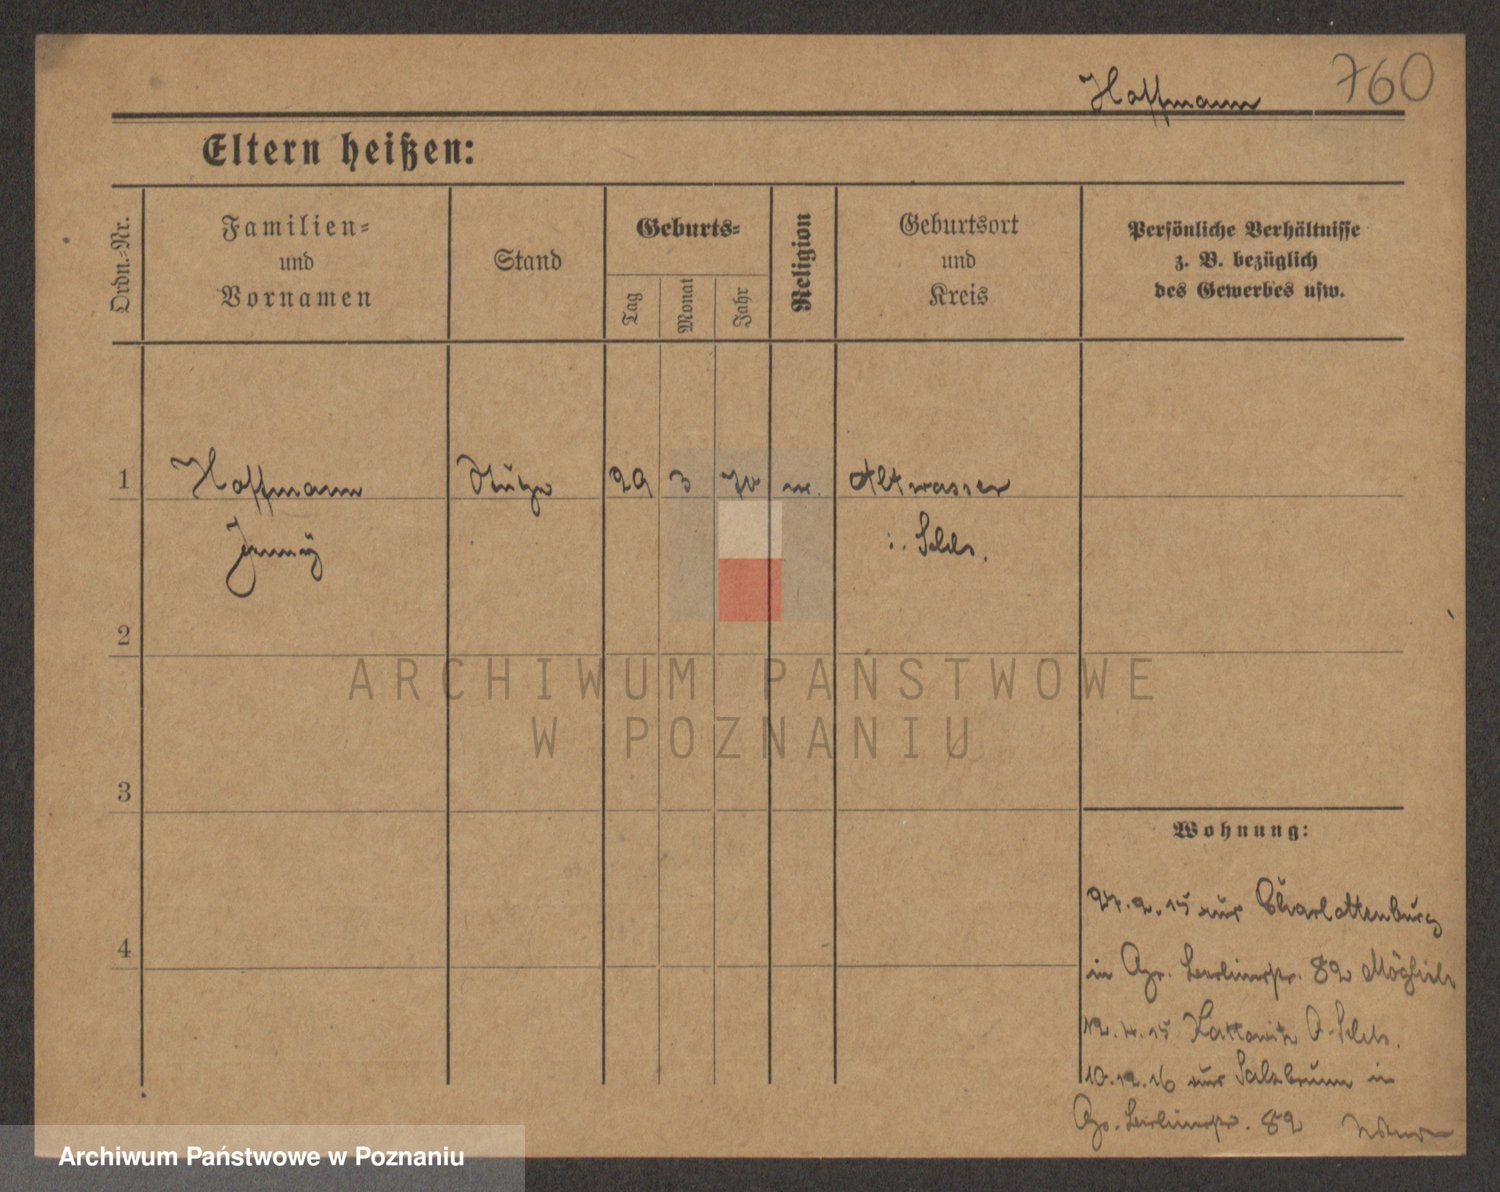 Hoffmann 760
Eltern heißen:
Ordn.-Nr.
Familien-
und
Vornamen
Stand
Geburts-
Tag
Monat
Jahr
Religion
Geburtsort
und
Kreis
Persönliche Verhältnisse
z. B. bezüglich
des Gewerbes usw.
1 Hoffmann Stütze 29 3 70 Altwasser
Jenny i. Schls.
2
ARCHIWUM PAŃSTWOWE
W POZNANIU
3
Wohnung:
4
27.2.15 aus Charlottenburg
in Berlinerstr. 82
12.4.15 Kattowitz O-Schls.
10.12.16 aus Salzbrunn in
Berlinerstr. 82
Archiwum Państwowe w Poznaniu